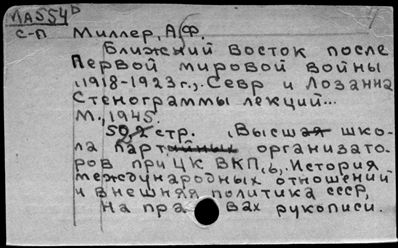 МА554D
с-п Миллер, А.Ф.
Ближний Восток после
Первой мировой войны
(1918-1923 г.). Севр и Лозанна
Стенограммы лекций...
М., 1945.
50,2 стр. (Высшая шко-
ла партийных организато-
ров при ЦК ВКП(б). История
международных отношений
и внешняя политика СССР,
На правах рукописи.